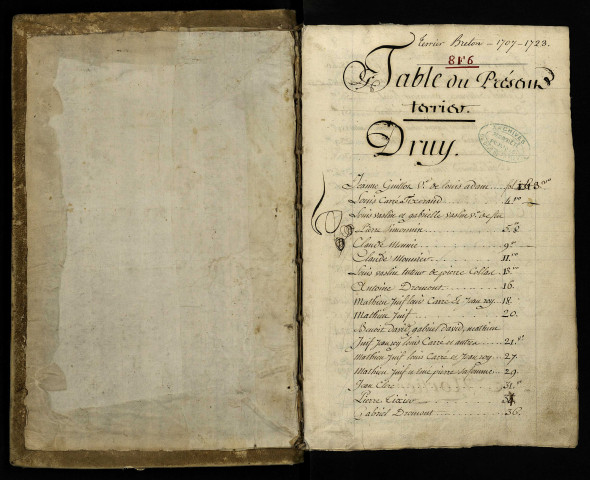 Terrier Breton – 1707-1723.
8F6
Table du Présent
terrier.
Druy.
ARCHIVES
Jeanne Guillot Ve. de louis adam fol
Louis Carré Tixerand 4.ro
Louis vaslin et gabrielle vaslin
Pierre Simonnin 5.
Claude Monnie 9.
Claude Monnier 11.ro
Louis vaslin tuteur de pierre Collas 13.ro
Antoine Dromont 16.
Mathieu Juif louis Carré et Jean 18.
Mathieu Juif 20.
Benoit david gabriel david, mathieu
Juif louis Carré et autres 21.
Mathieu Juif louis Carré et 27.
Mathieu Juif et pierre 29.
Jean Clerc 31.
Pierre Tixier
Gabriel Dromont 36.